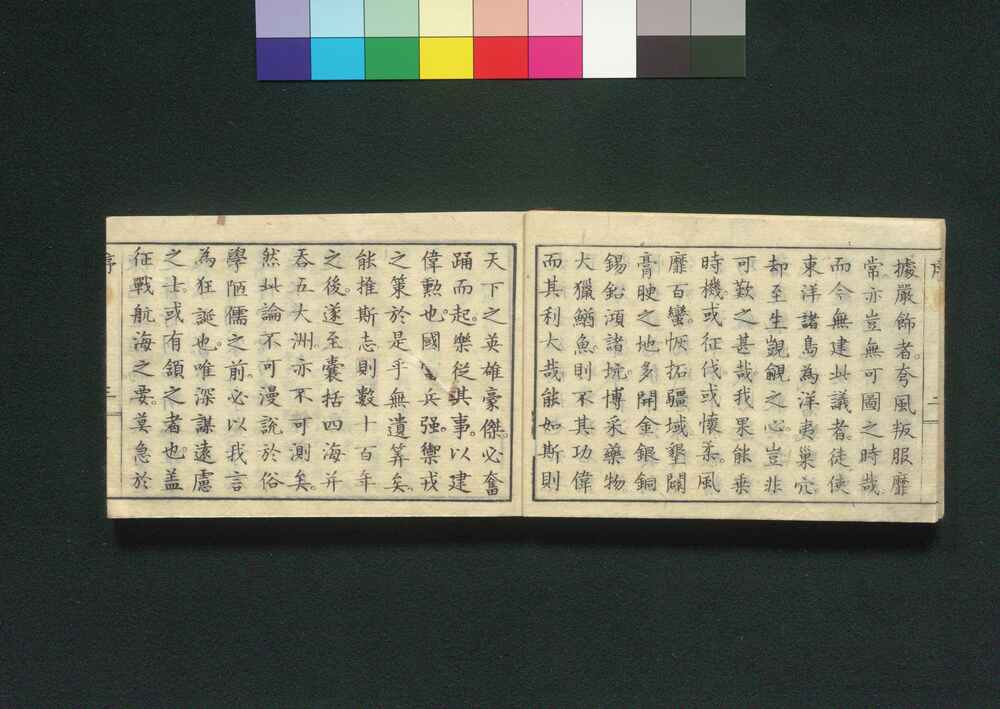 據嚴飾者。夸風叛服靡
常亦豈無可圖之時哉
而今無建此議者。徒使
東洋諸島為洋夷巢穴。
却至生覬覦之心。豈非
可歎之甚哉我果能乗
時機或征伐或懷柔。風
靡百蠻。恢拓疆域墾闢
膏腴之地多開金銀銅
錫鉛汞諸坑。博采藥物
大獵鰌魚則不其功偉
而其利大哉能如斯則
天下之英雄豪傑。必奮
踊而起樂從其事。以建
偉勲也。國 兵强禦戎
之策於是乎無遺筭矣。
能推斯志則數十百年
之後。遂至囊括四海并
吞五大洲亦不可測矣。
然此論不可漫說於俗
學陋儒之前。必以我言
為狂誕也。唯深謀遠慮
之士。或有領之者也。盖
征戰航海之要莫急於
序
二
序
三